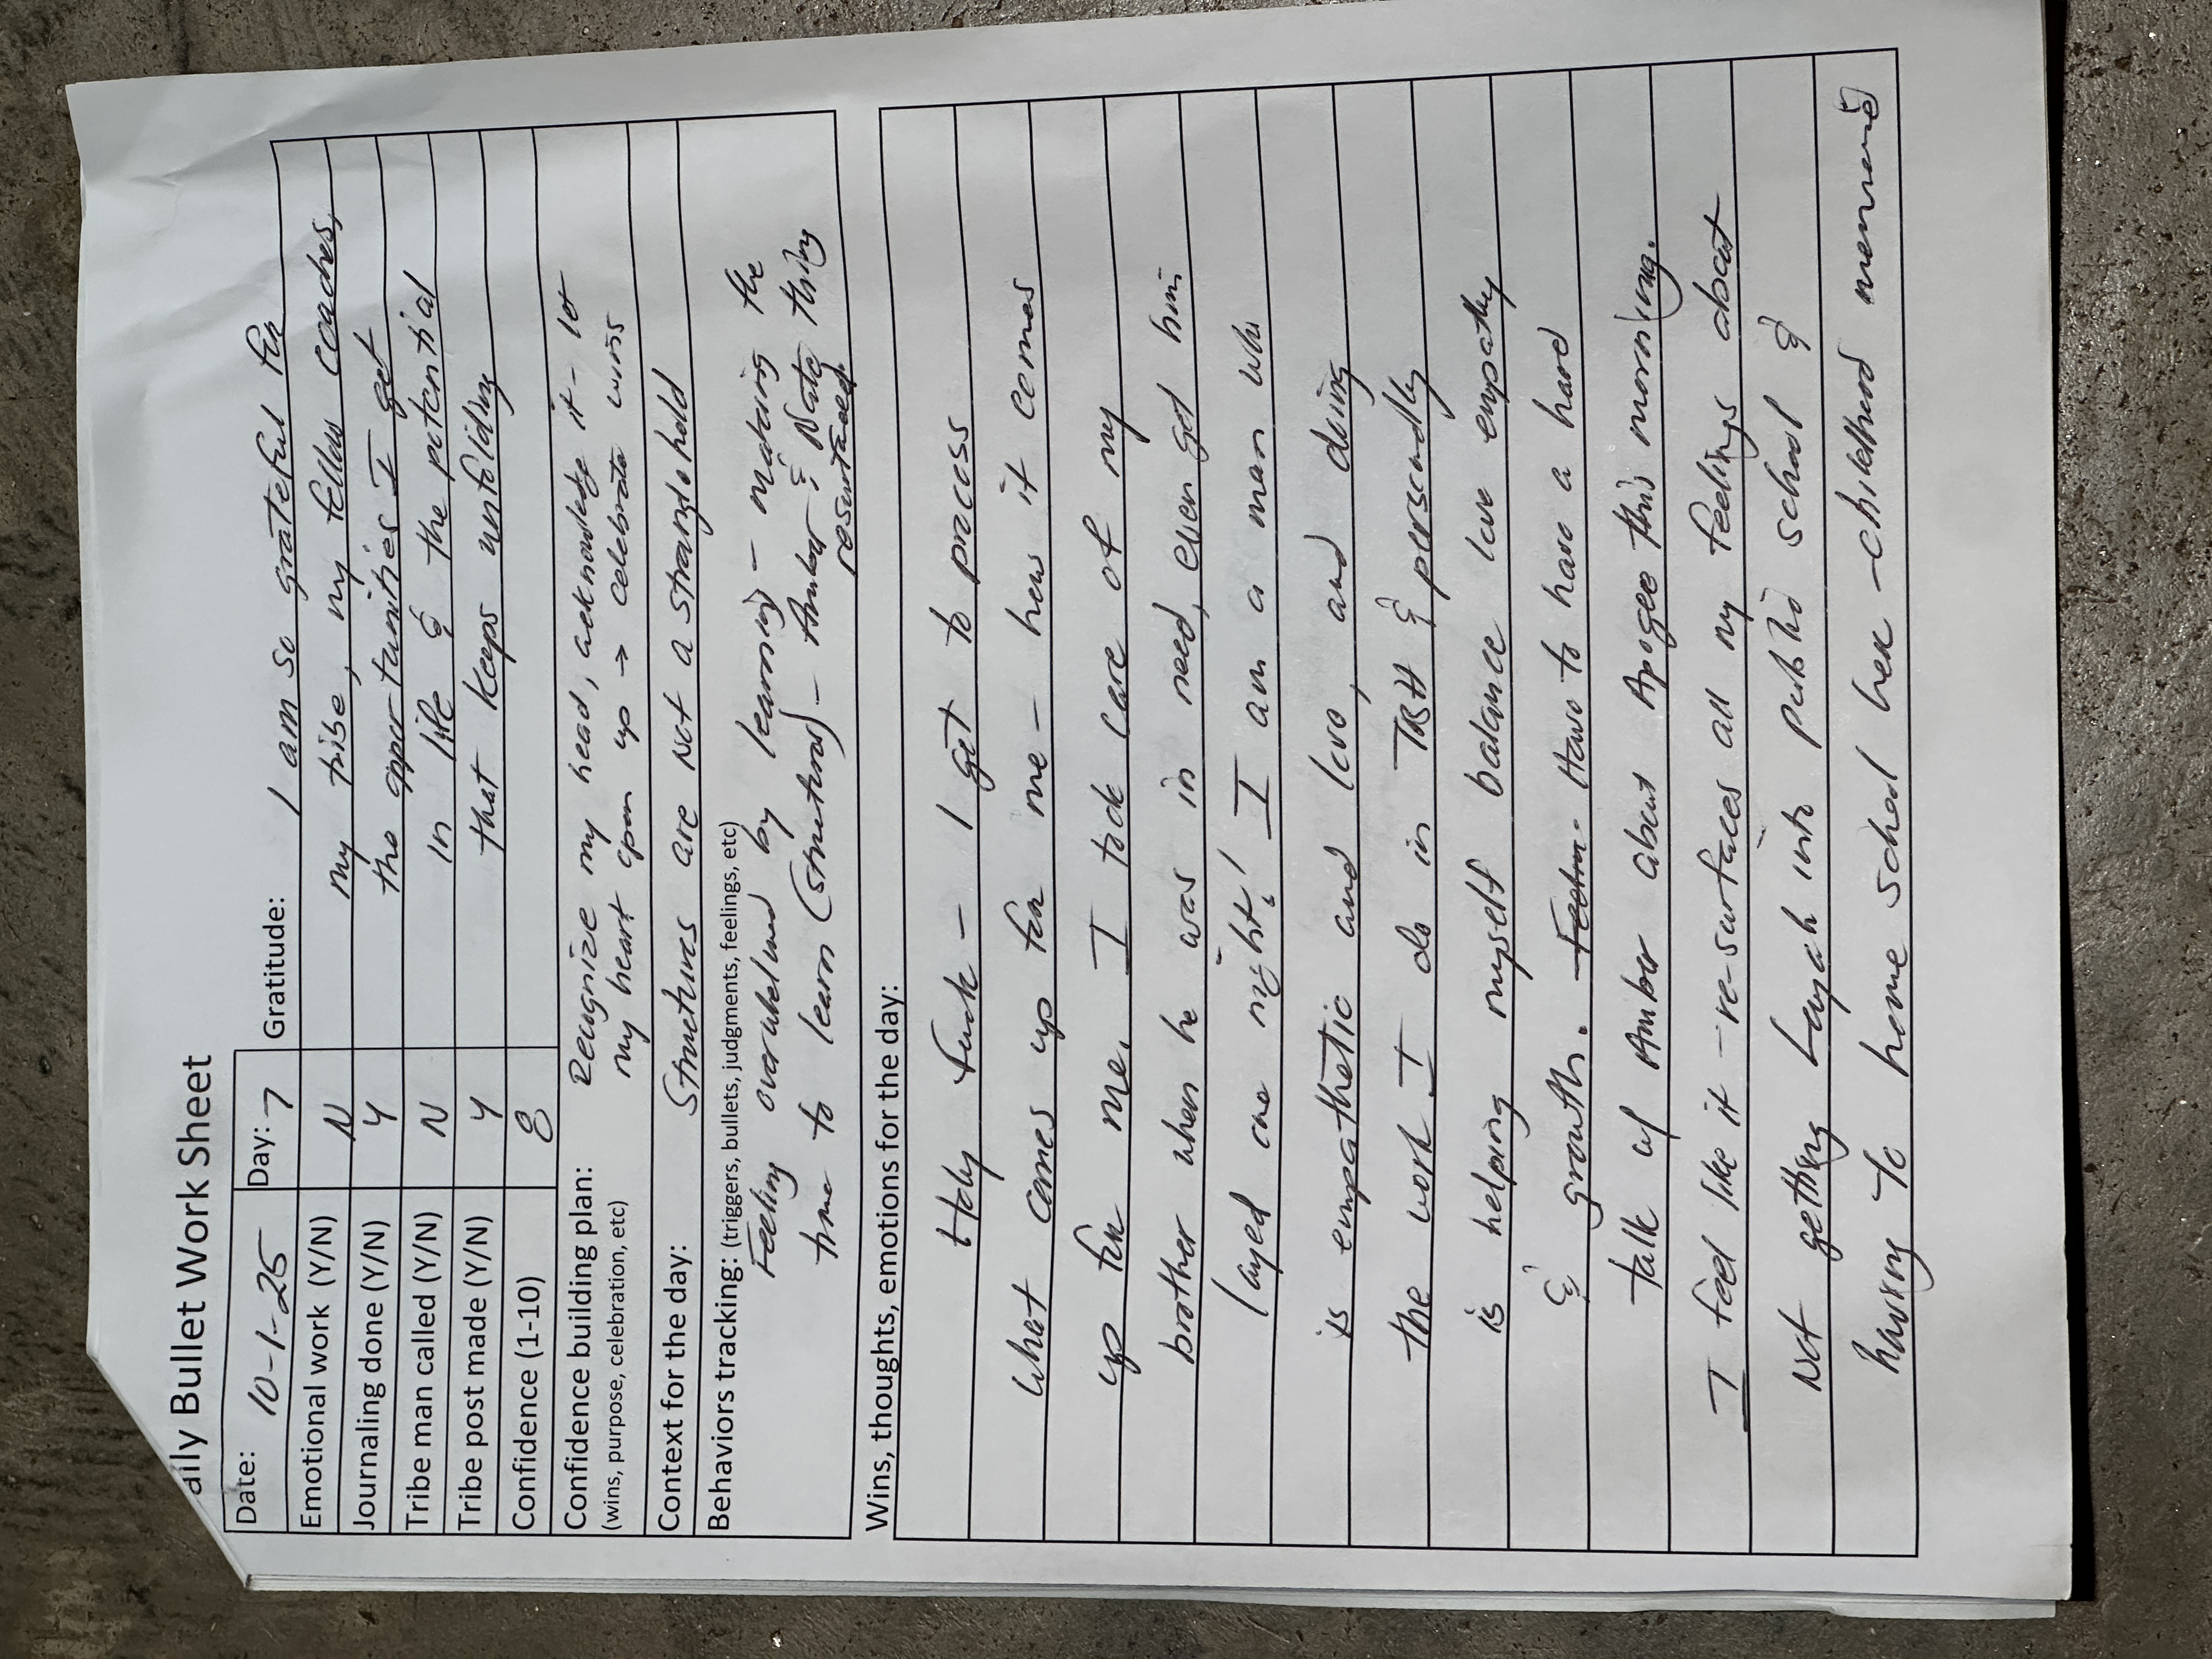 aily Bullet Work Sheet
Date: 10-1-25 Day: 7 Gratitude: I am so grateful for
Emotional work (Y/N) N my tribe, my fellow coaches,
Journaling done (Y/N) Y the opportunities I get
Tribe man called (Y/N) N in life & the potential
Tribe post made (Y/N) Y that keeps unfolding
Confidence (1-10) 8
Confidence building plan: Recognize my head, acknowledge it - let
(wins, purpose, celebration, etc) my heart open up → celebrate wins
Context for the day: Structures are not a stranglehold
Behaviors tracking: (triggers, bullets, judgments, feelings, etc)
Feeling overwhelmed by learning - making the
time to learn (structures) - Amber & Nate thing
resurfaced
Wins, thoughts, emotions for the day:
Holy fuck - I get to process
what comes up for me - how it comes
up for me. I took care of my
brother when he was in need, even got him
layed one night! I am a man who
is empathetic and love, and doing
the work I do in TBH & personally
is helping myself balance love empathy
& growth. Have to have a hard
talk w/ Amber about Apogee this morning.
I feel like it re-surfaces all my feelings about
Not getting Layah into public school &
having to home school her - childhood memories